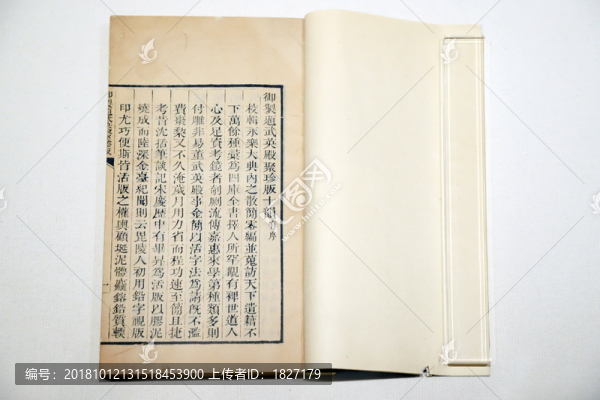 御製題武英殿聚珍版十韻有序
校輯永樂大典內之散簡零編並蒐訪天下遺籍不
下萬餘種彙為四庫全書擇人所罕覯有裨世道人
心及足資考鏡者剞劂流傳嘉惠來學第種類多則
付雕非易董武英殿事金簡以活字法為請既不濫
費棗棃又不久淹歲月用力省而程功速至簡且捷
考昔沈括筆談記宋慶歷中有畢昇為活版以膠泥
燒成而陸深金臺紀聞則云毘陵人初用鉛字視版
印尤巧便斯皆活版之權輿顧埏泥體麤鎔鉛質輭
一
编号：20181012131518453900 上传者ID：1827179